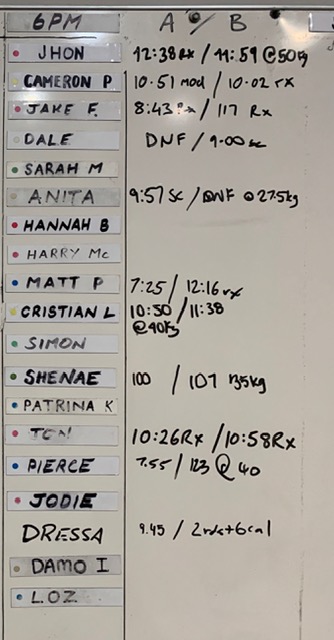 6PM A / B
JHON 12:38 Rx / 11:59 @50kg
CAMERON P 10.51 mod / 10.02 rx
JAKE F. 8:43 Rx / 117 Rx
DALE DNF / 9.00 sc
SARAH M
ANITA 9:57 Sc / DNF @ 27.5kg
HANNAH B
HARRY Mc
MATT P 7:25 / 12:16 rx
CRISTIAN L 10:50 / 11:38
@40kg
SIMON
SHENAE 100 / 107 35kg
PATRINA K
TOM 10:26Rx / 10:58Rx
PIERCE 7.55 / 123 @ 40
JODIE
DRESSA 9.45 / 2rds+6cal
DAMO I
LOZ